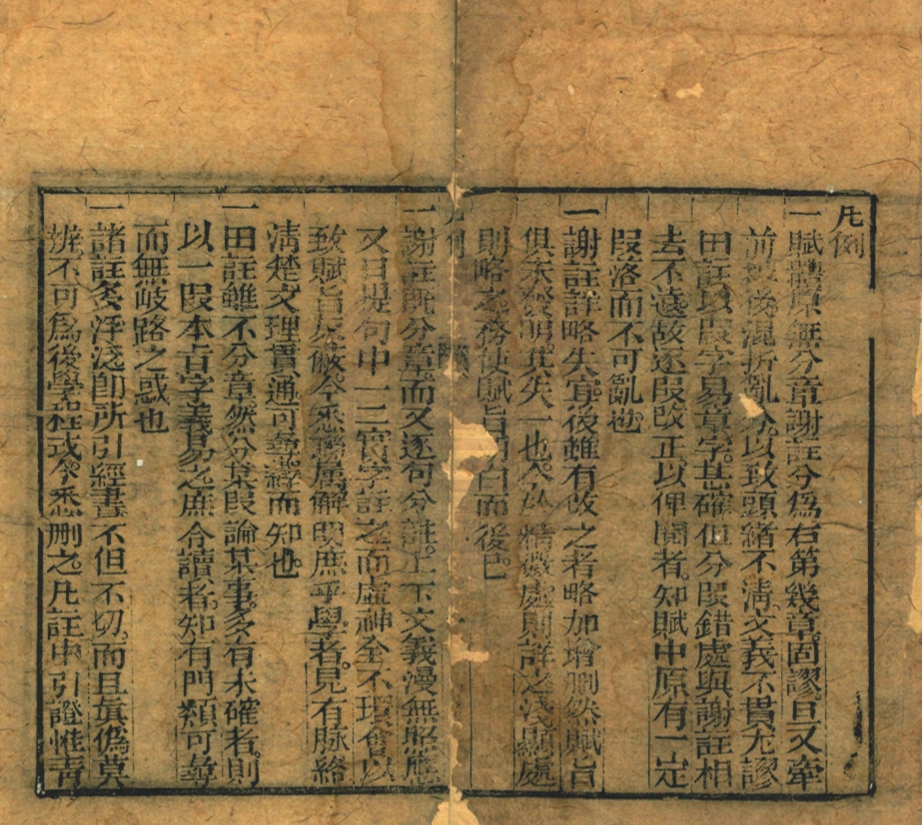 凡例
一賦體原無分章謝註分爲右第幾章固謬且又牽
前後混折亂分以致頭緒不清文義不貫尤謬
田註以叚字易章字甚確但分叚錯處與謝註相
去不遠故逐叚改正以俾閱者知賦中原有一定
叚落而不可亂也
一謝註詳略失宜後雖有改之者略加增刪然賦旨
俱未發明其失一也今於精微處則詳之淺顯處
則略之務使賦旨明白而後已
凡例
一謝註既分章而又逐句分註上下文義漫無照應
又曰提句中一二實字註之而虛神全不理會以
致賦旨反晦今悉聯屬解明庶乎學者見有脉絡
清楚文理貫通可尋繹而知也
一田註雖不分章然分某叚論某事多有未確者則
以一叚本百字義易之庶令讀者知有門類可尋
而無岐路之惑也
一諸註多浮淺卽所引經書不但不切而且眞僞莫
辨不可爲後學程式今悉刪之凡註中引證惟靑